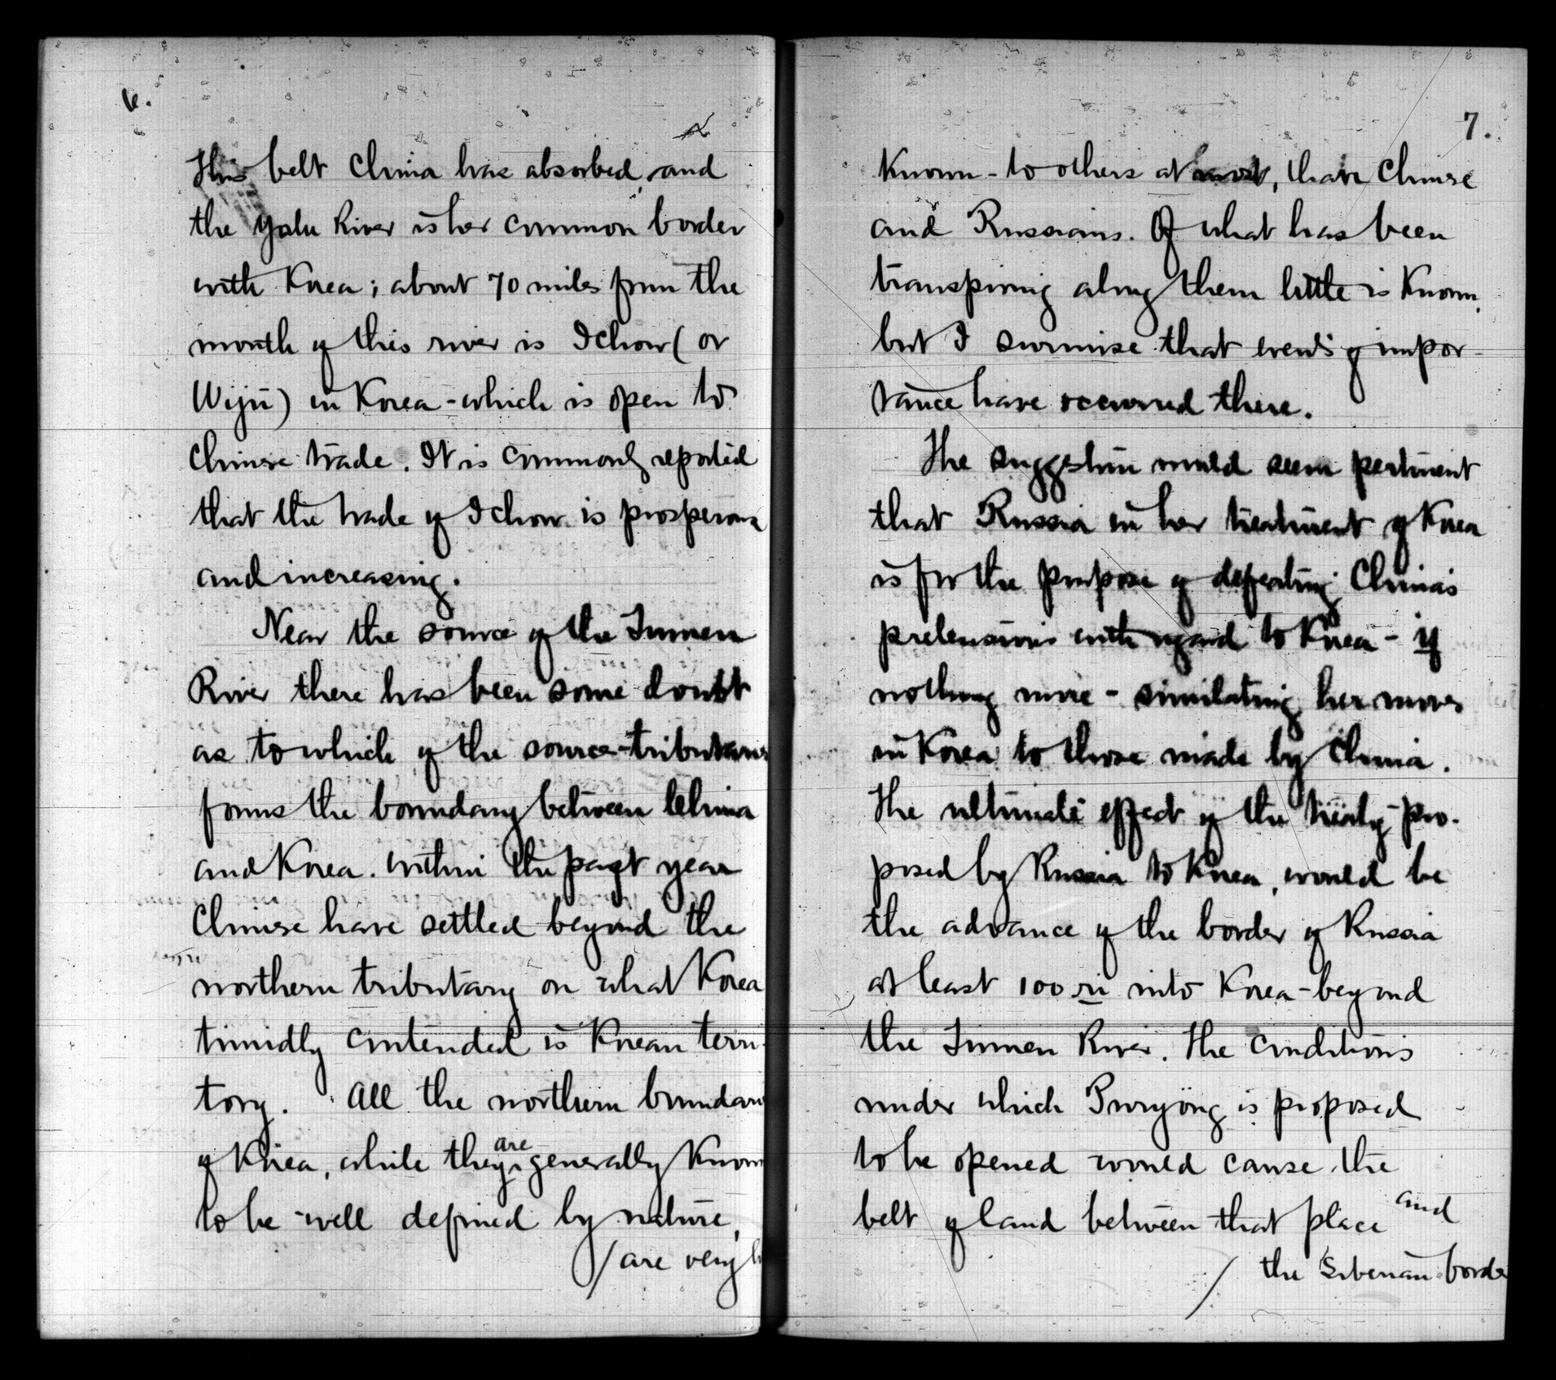 6.
This belt China has absorbed, and
the Yalu River is her common border
with Korea; about 70 miles from the
mouth of this river is Ichow (or
Wiju) in Korea - which is open to
Chinese trade. It is commonly reported
that the trade of Ichow is prosperous
and increasing.
Near the source of the Tumen
River there has been some doubt
as to which of the source-tributaries
forms the boundary between China
and Korea. Within the past year
Chinese have settled beyond the
northern tributary on what Korea
timidly contended is Korean terri-
tory. All the northern boundary
of Korea, while they are generally known
to be well defined by nature,
/ are very
7.
known - to others at most, than Chinese
and Russians. Of what has been
transpiring along them little is known,
but I surmise that events of impor-
tance have occurred there.
The suggestion would seem pertinent
that Russia in her treatment of Korea
is for the purpose of defeating China's
pretensions with regard to Korea - if
nothing more - similating her moves
in Korea to those made by China.
The ultimate effect of the treaty pro-
posed by Russia to Korea, would be
the advance of the border of Russia
at least 100 ri into Korea - beyond
the Tumen River. The conditions
under which is proposed
to be opened would cause the
belt of land between that place and
/ the Siberian border